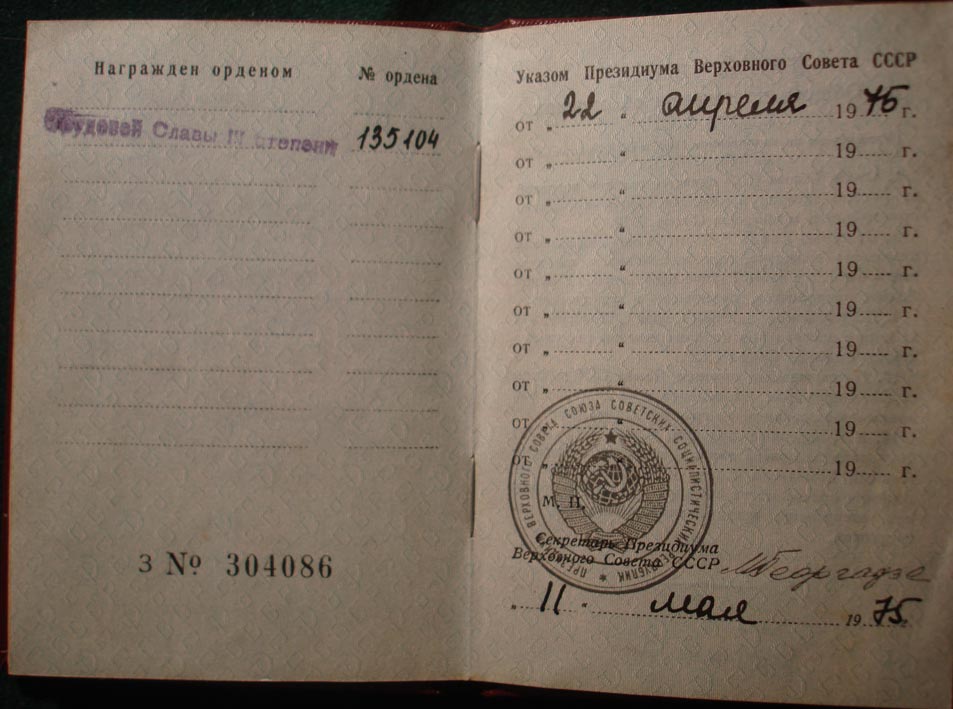 Награжден орденом № ордена
Трудовой Славы III степени 135104
З № 304086
Указом Президиума Верховного Совета СССР
от „ 22 “ апреля 1975 г.
от „ “ 19 г.
от „ “ 19 г.
от „ “ 19 г.
от „ “ 19 г.
от „ “ 19 г.
от „ “ 19 г.
от „ “ 19 г.
от „ “ 19 г.
от „ “ 19 г.
М. П.
ПРЕЗИДИУМ ВЕРХОВНОГО СОВЕТА СОЮЗА СОВЕТСКИХ СОЦИАЛИСТИЧЕСКИХ РЕСПУБЛИК
Секретарь Президиума
Верховного Совета СССР МГеоргадзе
„ 11 “ мая 1975 г.